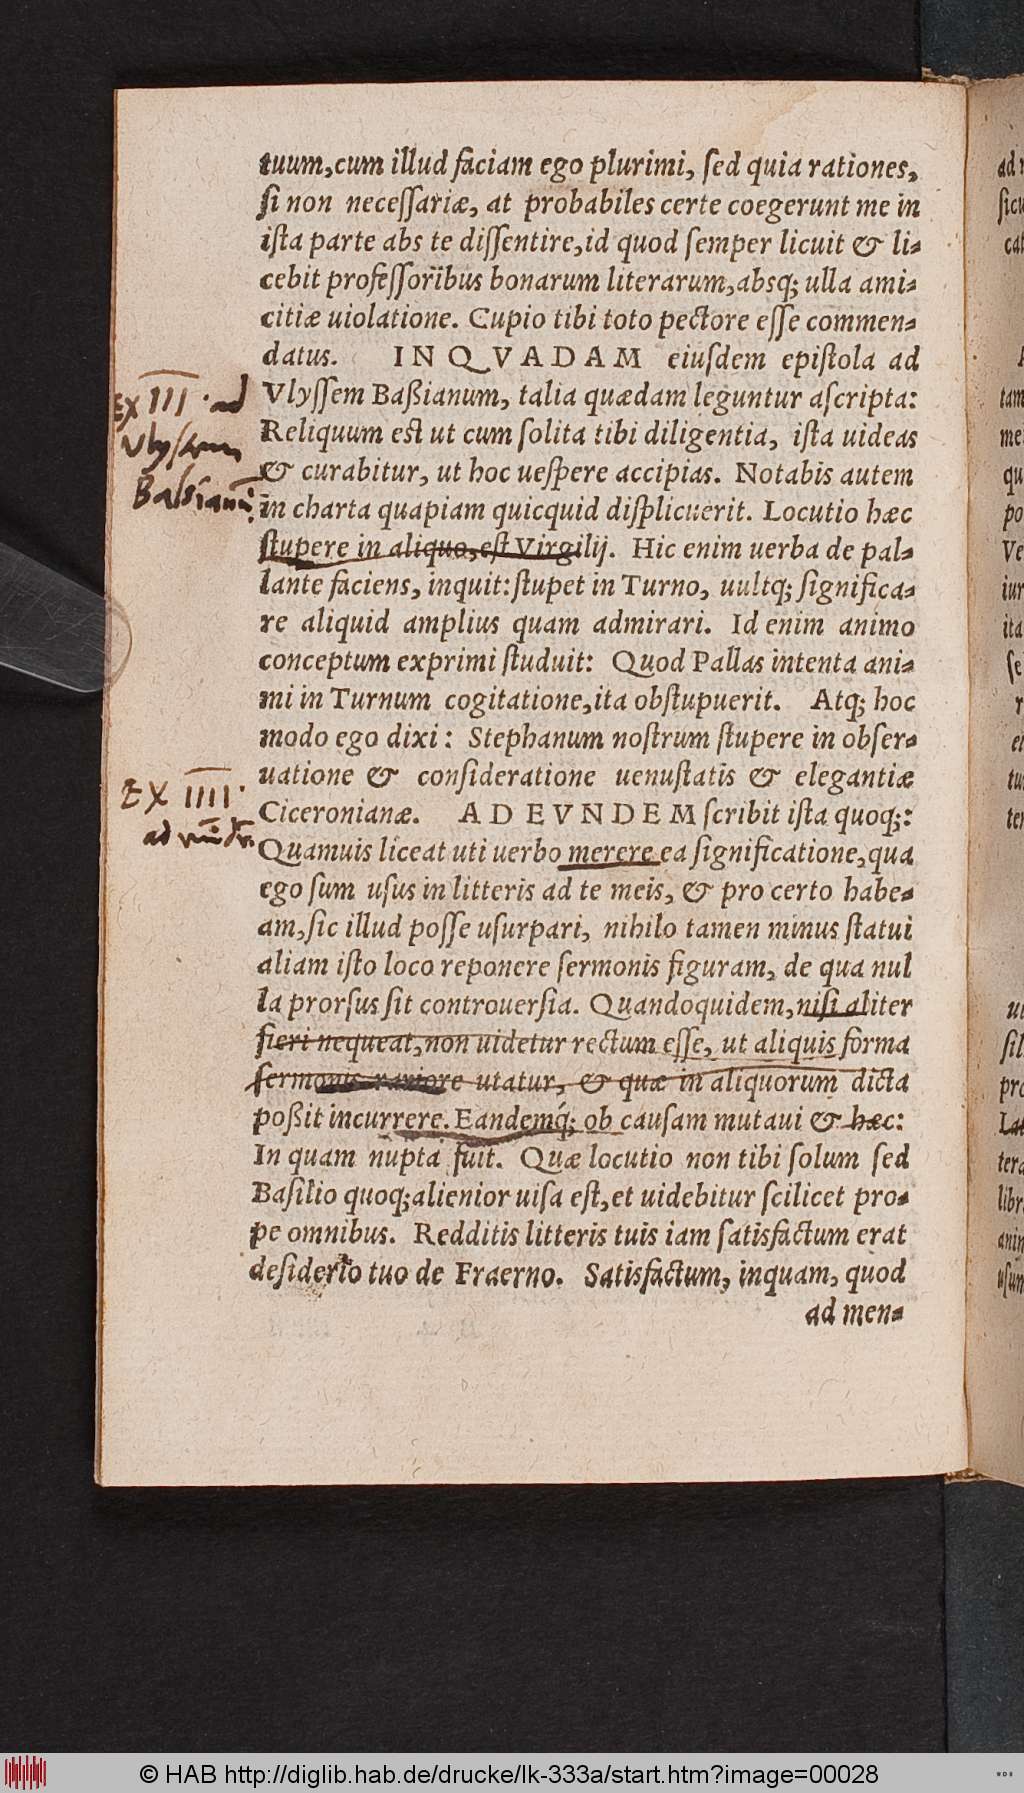 tuum, cum illud faciam ego plurimi, ſed quia rationes,
ſi non neceſſariæ, at probabiles certe coegerunt me in
iſta parte abs te diſſentire, id quod ſemper licuit & li-
cebit profeſſoribus bonarum literarum, absq; ulla ami-
citiæ uiolatione. Cupio tibi toto pectore eſſe commen-
datus. INQVADAM eiuſdem epiſtola ad
Vlyſſem Baßianum, talia quædam leguntur aſcripta:
Reliquum eſt ut cum ſolita tibi diligentia, iſta uideas
& curabitur, ut hoc ueſpere accipias. Notabis autem
in charta quapiam quicquid diſplicuerit. Locutio hæc
ſtupere in aliquo, eſt Virgilij. Hic enim uerba de pal-
lante faciens, inquit: ſtupet in Turno, uultq; ſignifica-
re aliquid amplius quam admirari. Id enim animo
conceptum exprimi ſtuduit: Quod Pallas intenta ani-
mi in Turnum cogitatione, ita obſtupuerit. Atq; hoc
modo ego dixi: Stephanum noſtrum ſtupere in obſer-
uatione & conſideratione uenuſtatis & elegantiæ
Ciceronianæ. AD EVNDEM ſcribit iſta quoq;:
Quamuis liceat uti uerbo merere ea ſignificatione, qua
ego ſum uſus in litteris ad te meis, & pro certo habe-
am, ſic illud poſſe uſurpari, nihilo tamen minus ſtatui
aliam iſto loco reponere ſermonis figuram, de qua nul
la prorſus ſit controuerſia. Quandoquidem, niſi aliter
fieri nequeat, non uidetur rectum eſſe, ut aliquis forma
ſermonis rariore utatur, & quæ in aliquorum dicta
poßit incurrere. Eandemq́; ob cauſam mutaui & hæc:
In quam nupta fuit. Quæ locutio non tibi ſolum ſed
Baſilio quoq; alienior uiſa eſt, et uidebitur ſcilicet pro-
pe omnibus. Redditis litteris tuis iam ſatisfactum erat
deſiderio tuo de Fraerno. Satisfactum, inquam, quod
ad men-
EX III. ad
Vlyſſem
Baſsianū.
EX IIII.
ad
© HAB http://diglib.hab.de/drucke/lk-333a/start.htm?image=00028